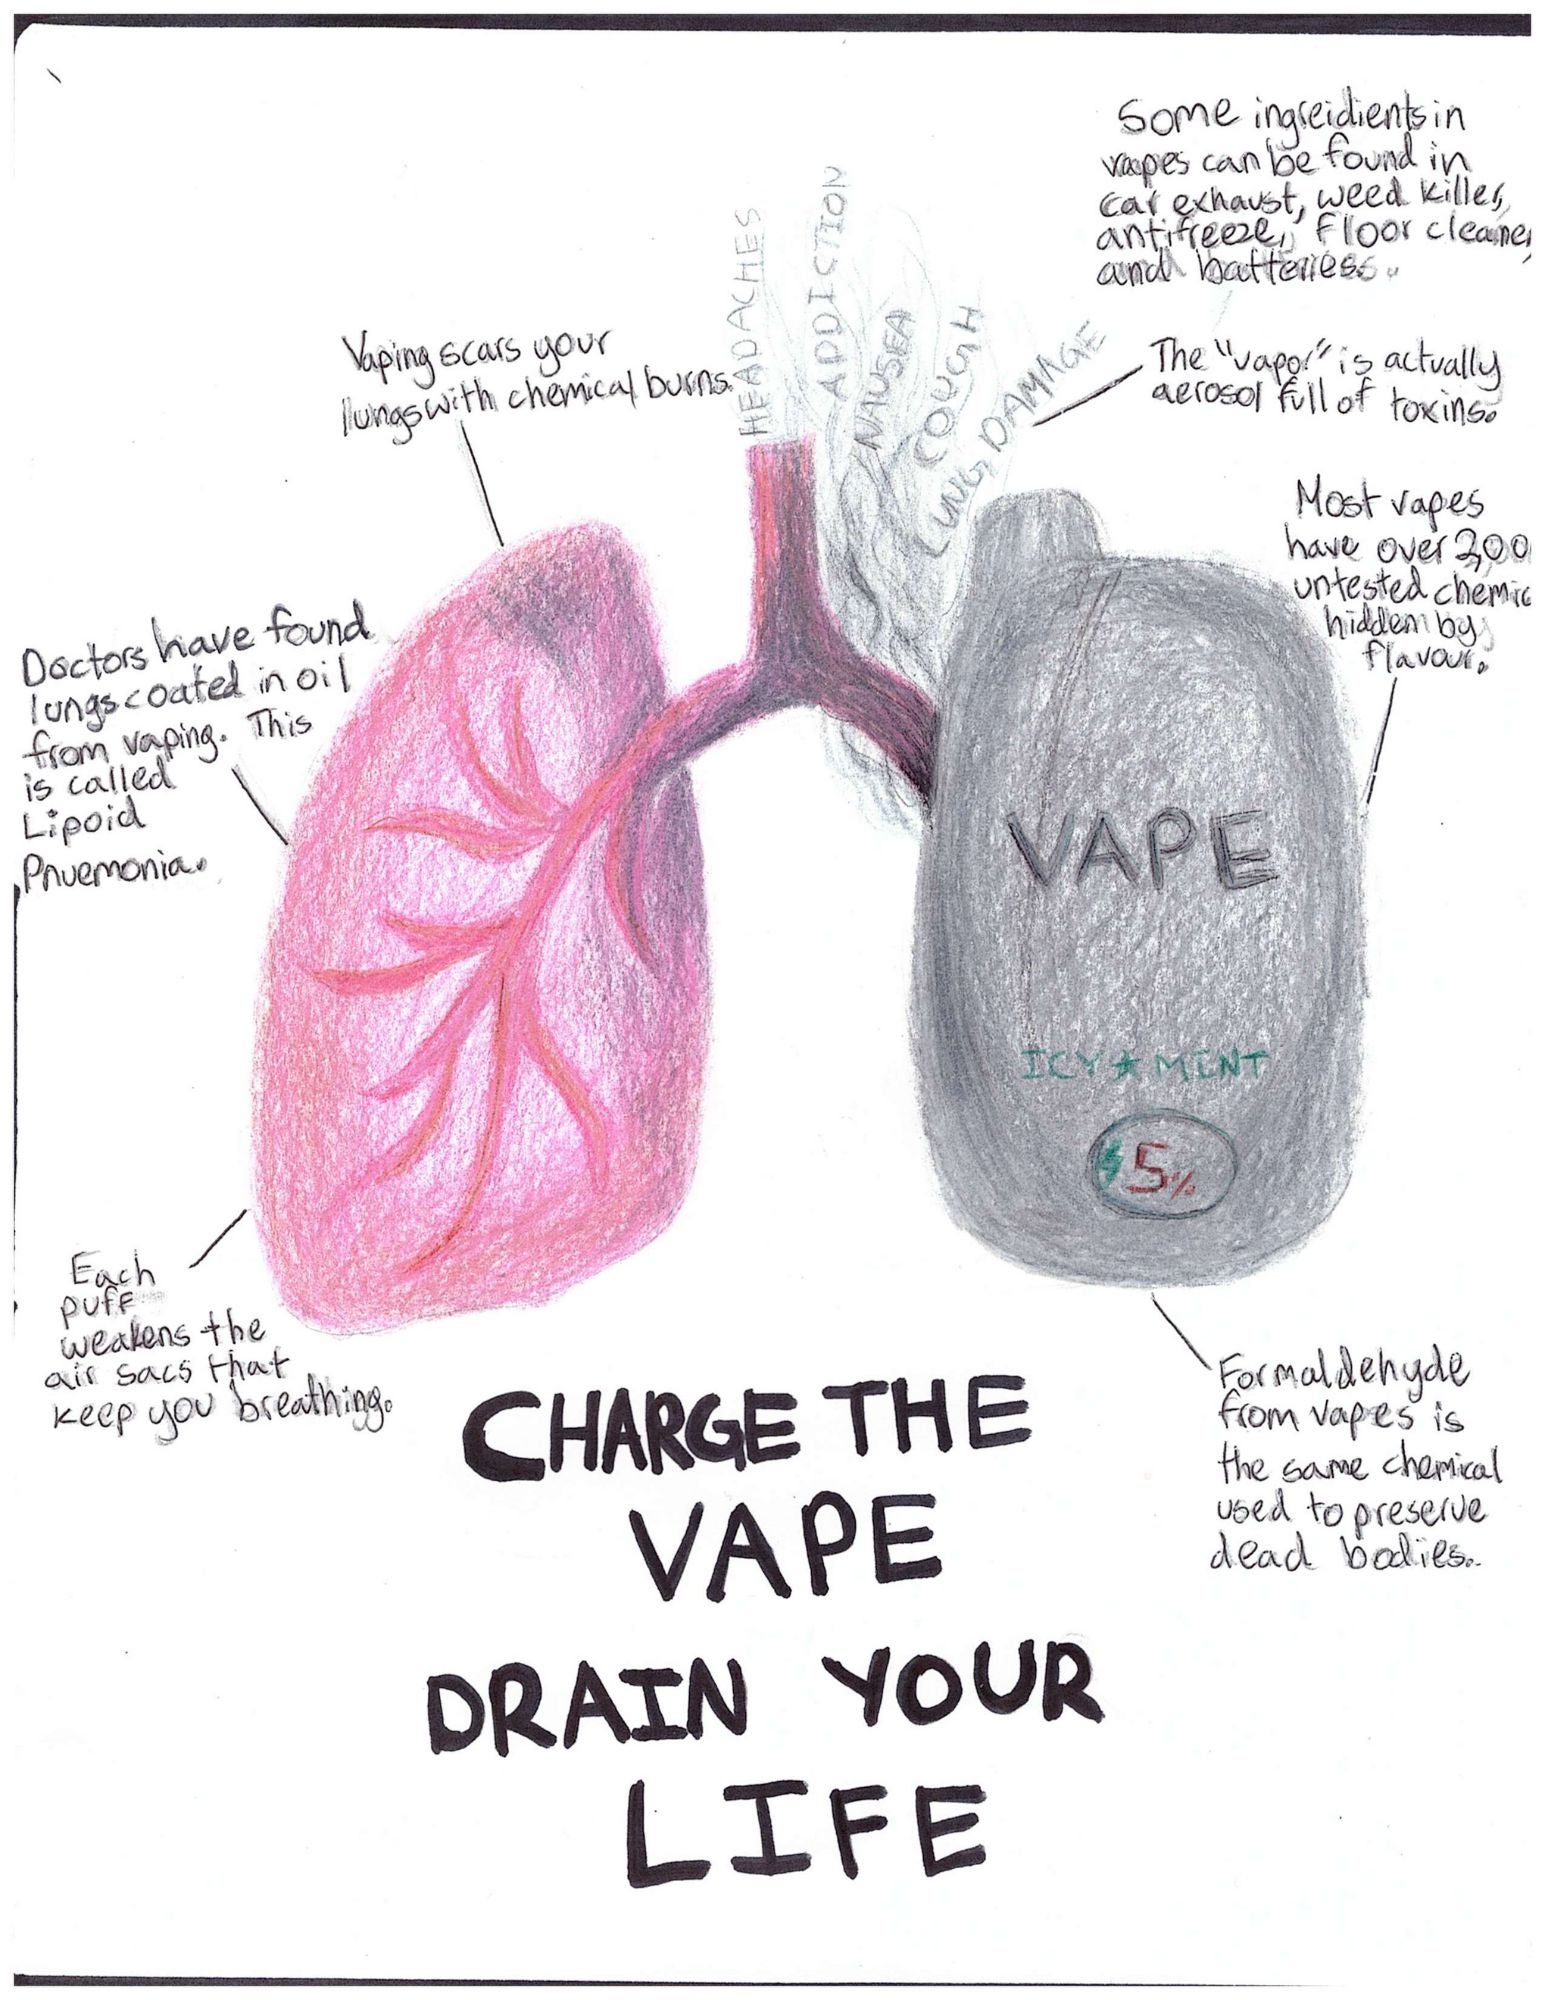 Some ingreidients in
vapes can be found in
car exhaust, weed killer,
antifreeze, floor cleaner,
and batteries.
HEADACHES
ADDICTION
NAUSEA
COUGH
LUNG DAMAGE
The "vapor" is actually
aerosol full of toxins.
Vaping scars your
lungs with chemical burns.
Most vapes
have over
untested chemic
hidden by
flavour.
Doctors have found
lungs coated in oil
from vaping. This
is called
Lipoid
Pnuemonia.
VAPE
ICY★MINT
5%
Each
puff
weakens the
air sacs that
keep you breathing.
Formaldehyde
from vapes is
the same chemical
used to preserve
dead bodies.
CHARGE THE
VAPE
DRAIN YOUR
LIFE